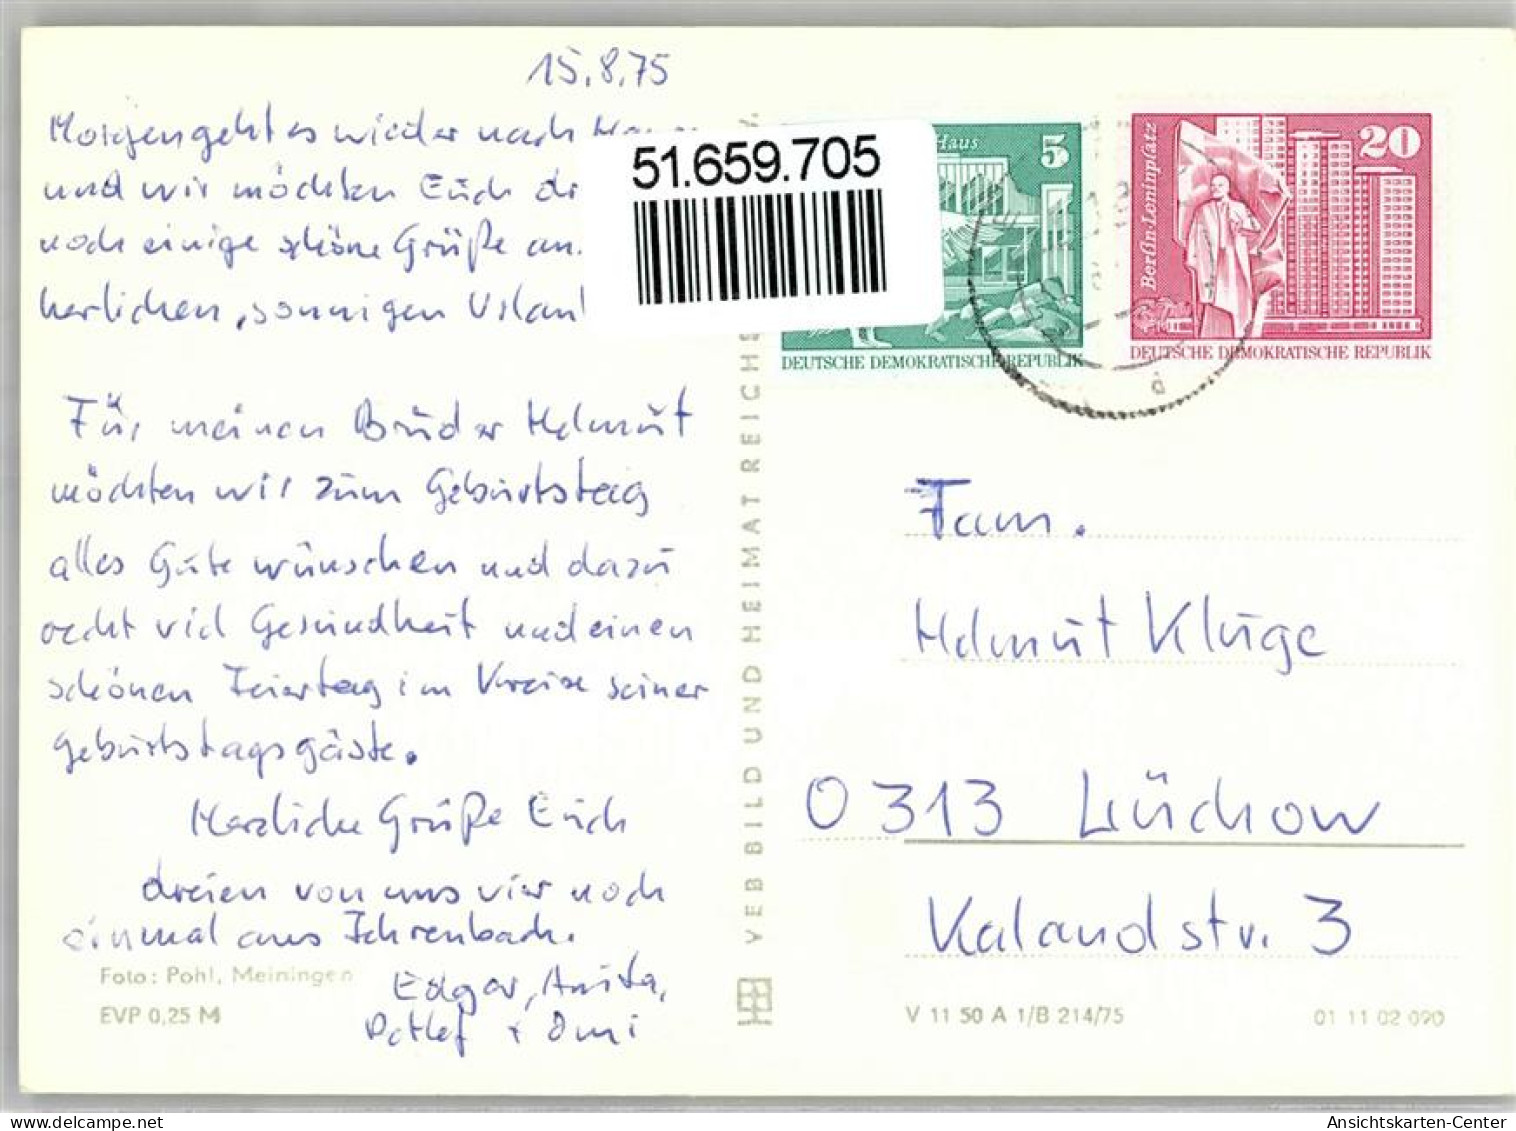 15.8.75
Morgen geht es wieder nach
und wir möchten Euch
noch einige schöne Grüße
herlichen, sonnigen
Für meinen Bruder Helmut
möchten wir zum Geburtstag
alles Gute wünschen und dazu
recht viel Gesundheit und einen
schönen Feiertag im Kreise seiner
Geburtstagsgäste.
Herzliche Grüße Euch
dreien von uns vier noch
einmal aus Fehrenbach.
Edgar, Anita,
Detlef + Omi
Foto: Pohl, Meiningen
EVP 0,25 M
VEB BILD UND HEIMAT REICHE
51.659.705
Haus
5
DEUTSCHE DEMOKRATISCHE REPUBLIK
Berlin-Leninplatz
20
DEUTSCHE DEMOKRATISCHE REPUBLIK
d
Fam.
Helmut Kluge
0313 Lüchow
Kalandstr. 3
V 11 50 A 1/B 214/75
01 11 02 090
www.ansichtskarten-center.de
Ansichtskarten-Center